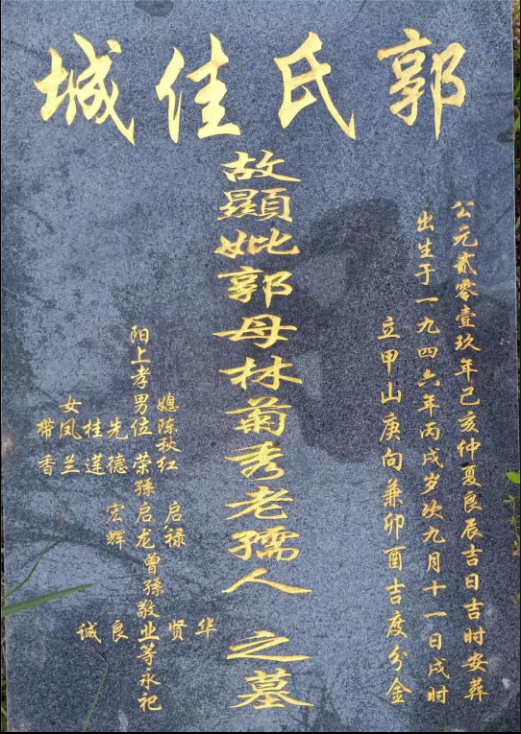 郭氏佳城
公元贰零壹玖年己亥仲夏良辰吉日吉时安葬
出生于一九四六年丙戌岁次九月十一日戌时
立甲山庚向兼卯酉吉度分金
故顯妣郭母林菊秀老孺人之墓
华
媳陈秋红 启禄 贤
阳上孝男位荣孫启龙曾孫敬业等永祀
先德 宏辉 良
桂莲 诚
女凤兰
带香